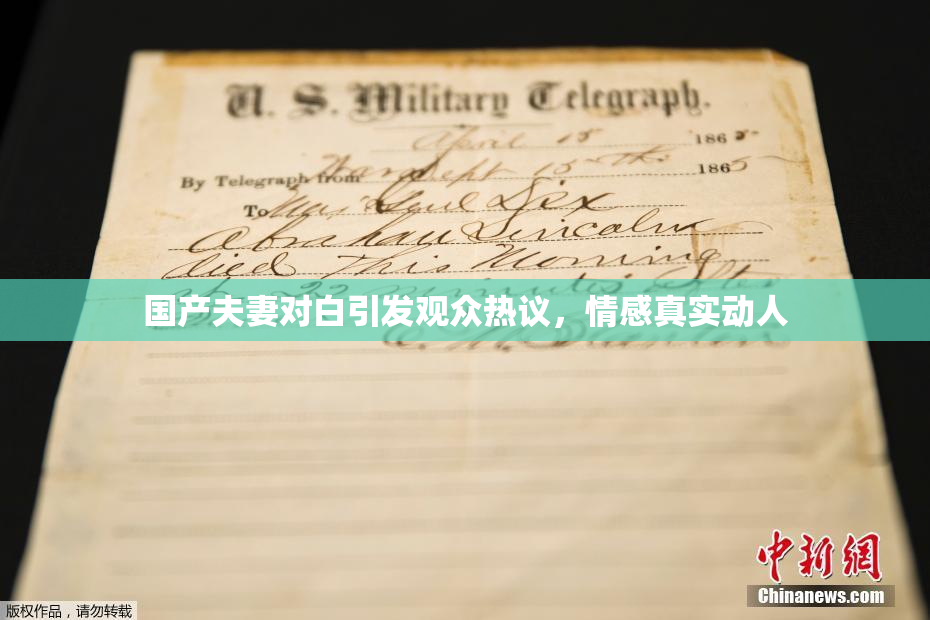 U. S. Military Telegraph.
April 15 1865
By Telegraph from War Dept 15th 1865
To Maj Genl Dix
Abraham Lincoln
died This Morning
22 minutes after
国产夫妻对白引发观众热议，情感真实动人
E. M. Stanton
中新网
Chinanews.com
版权作品，请勿转载